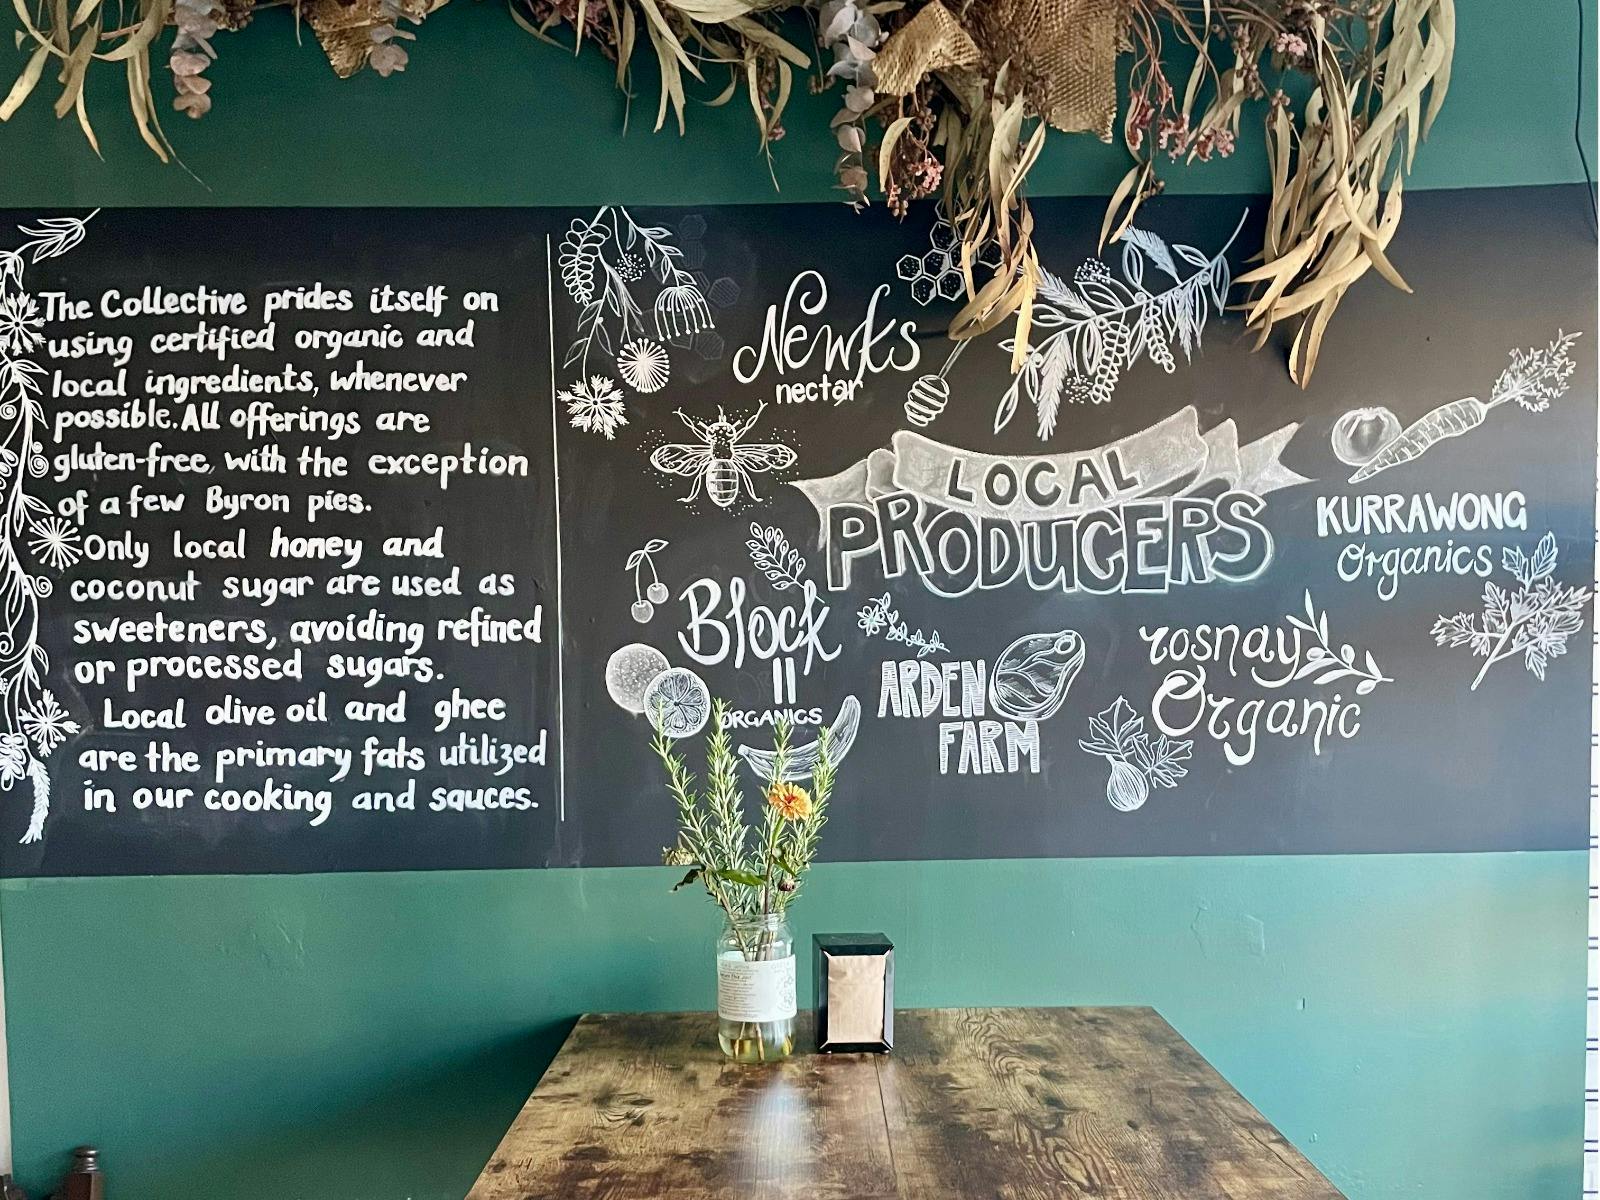 The Collective prides itself on
using certified organic and
local ingredients, whenever
possible. All offerings are
gluten-free, with the exception
of a few Byron pies.
Only local honey and
coconut sugar are used as
sweeteners, avoiding refined
or processed sugars.
Local olive oil and ghee
are the primary fats utilized
in our cooking and sauces.
Newks
nectar
LOCAL
PRODUCERS
KURRAWONG
Organics
Block
11
ORGANICS
ARDEN
FARM
rosnay
Organic